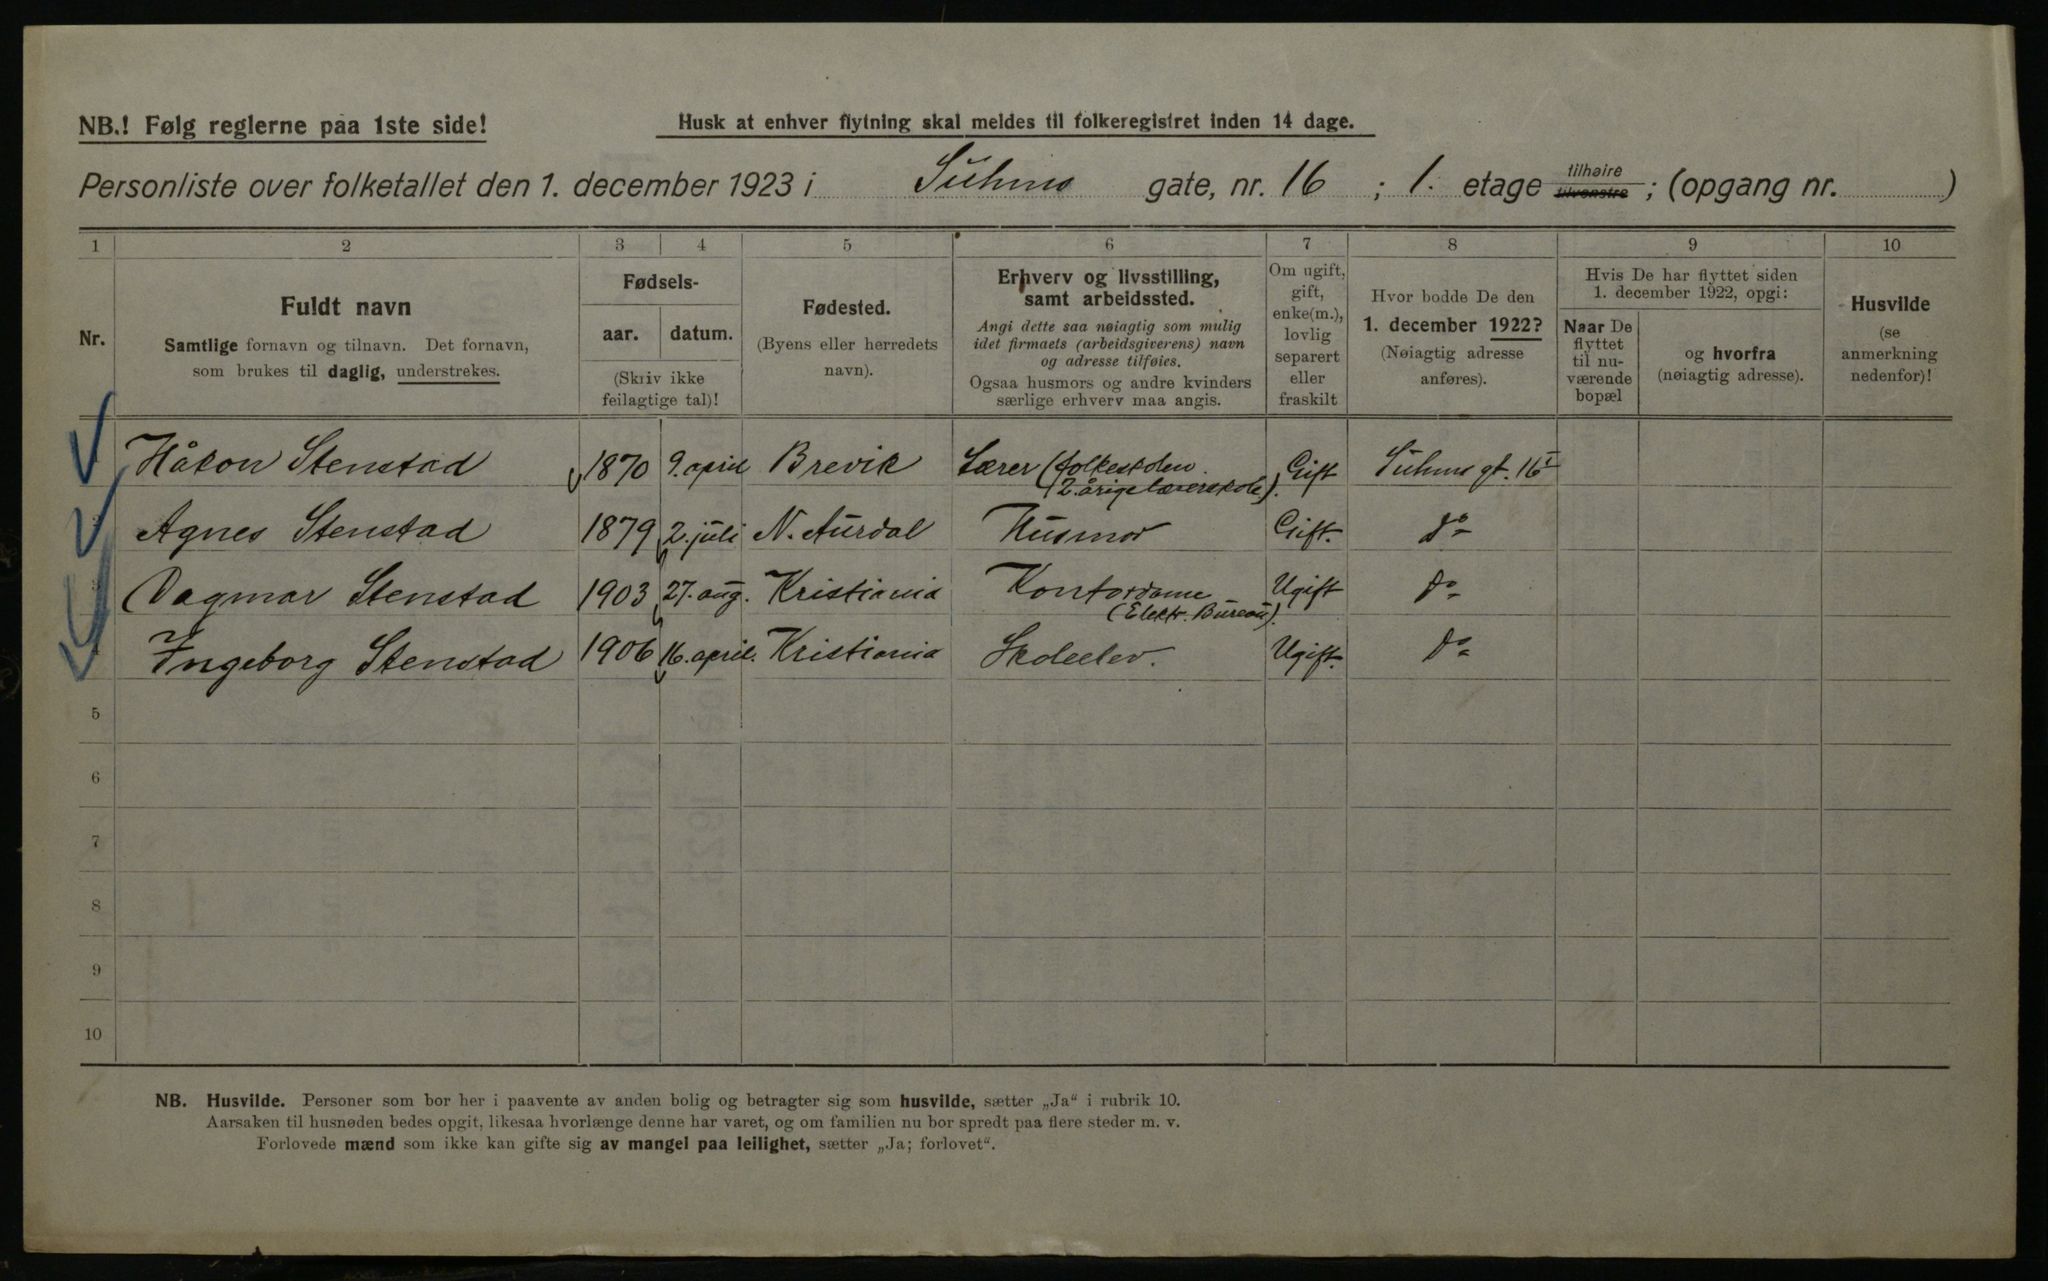 NB.! Følg reglerne paa 1ste side!
Husk at enhver flytning skal meldes til folkeregistret inden 14 dage.
Personliste over folketallet den 1. december 1923 i Suhms gate, nr. 16 ; 1. etage tilhøire tilvenstre ; (opgang nr. )
1 2 3 4 5 6 7 8 9 10
Nr.
Fuldt navn
Samtlige fornavn og tilnavn. Det fornavn,
som brukes til daglig, understrekes.
Fødsels-
aar. datum.
(Skriv ikke
feilagtige tal)!
Fødested.
(Byens eller herredets
navn).
Erhverv og livsstilling,
samt arbeidssted.
Angi dette saa nøiagtig som mulig
idet firmaets (arbeidsgiverens) navn
og adresse tilføies.
Ogsaa husmors og andre kvinders
særlige erhverv maa angis.
Om ugift,
gift,
enke(m.),
lovlig
separert
eller
fraskilt
Hvor bodde De den
1. december 1922?
(Nøiagtig adresse
anføres).
Hvis De har flyttet siden
1. december 1922, opgi:
Naar De
flyttet
til nu-
værende
bopæl
og hvorfra
(nøiagtig adresse).
Husvilde
(se
anmerkning
nedenfor)!
Håkon Stenstad 1870 9. april Brevik Lærer (folkeskolen. Gift Suhms gt. 16 I
2. årige lærerskole).
Agnes Stenstad 1879 2. juli N. Aurdal Husmor Gift. do
Dagmar Stenstad 1903 27. aug. Kristiania Kontordame Ugift do
(Elektr. Bureau).
4 Ingeborg Stenstad 1906 16. april. Kristiania Skoleelev. Ugift. do
5
6
7
8
9
10
NB. Husvilde. Personer som bor her i paavente av anden bolig og betragter sig som husvilde, sætter „Ja“ i rubrik 10.
Aarsaken til husnøden bedes opgit, likesaa hvorlænge denne har varet, og om familien nu bor spredt paa flere steder m. v.
Forlovede mænd som ikke kan gifte sig av mangel paa leilighet, sætter „Ja; forlovet“.